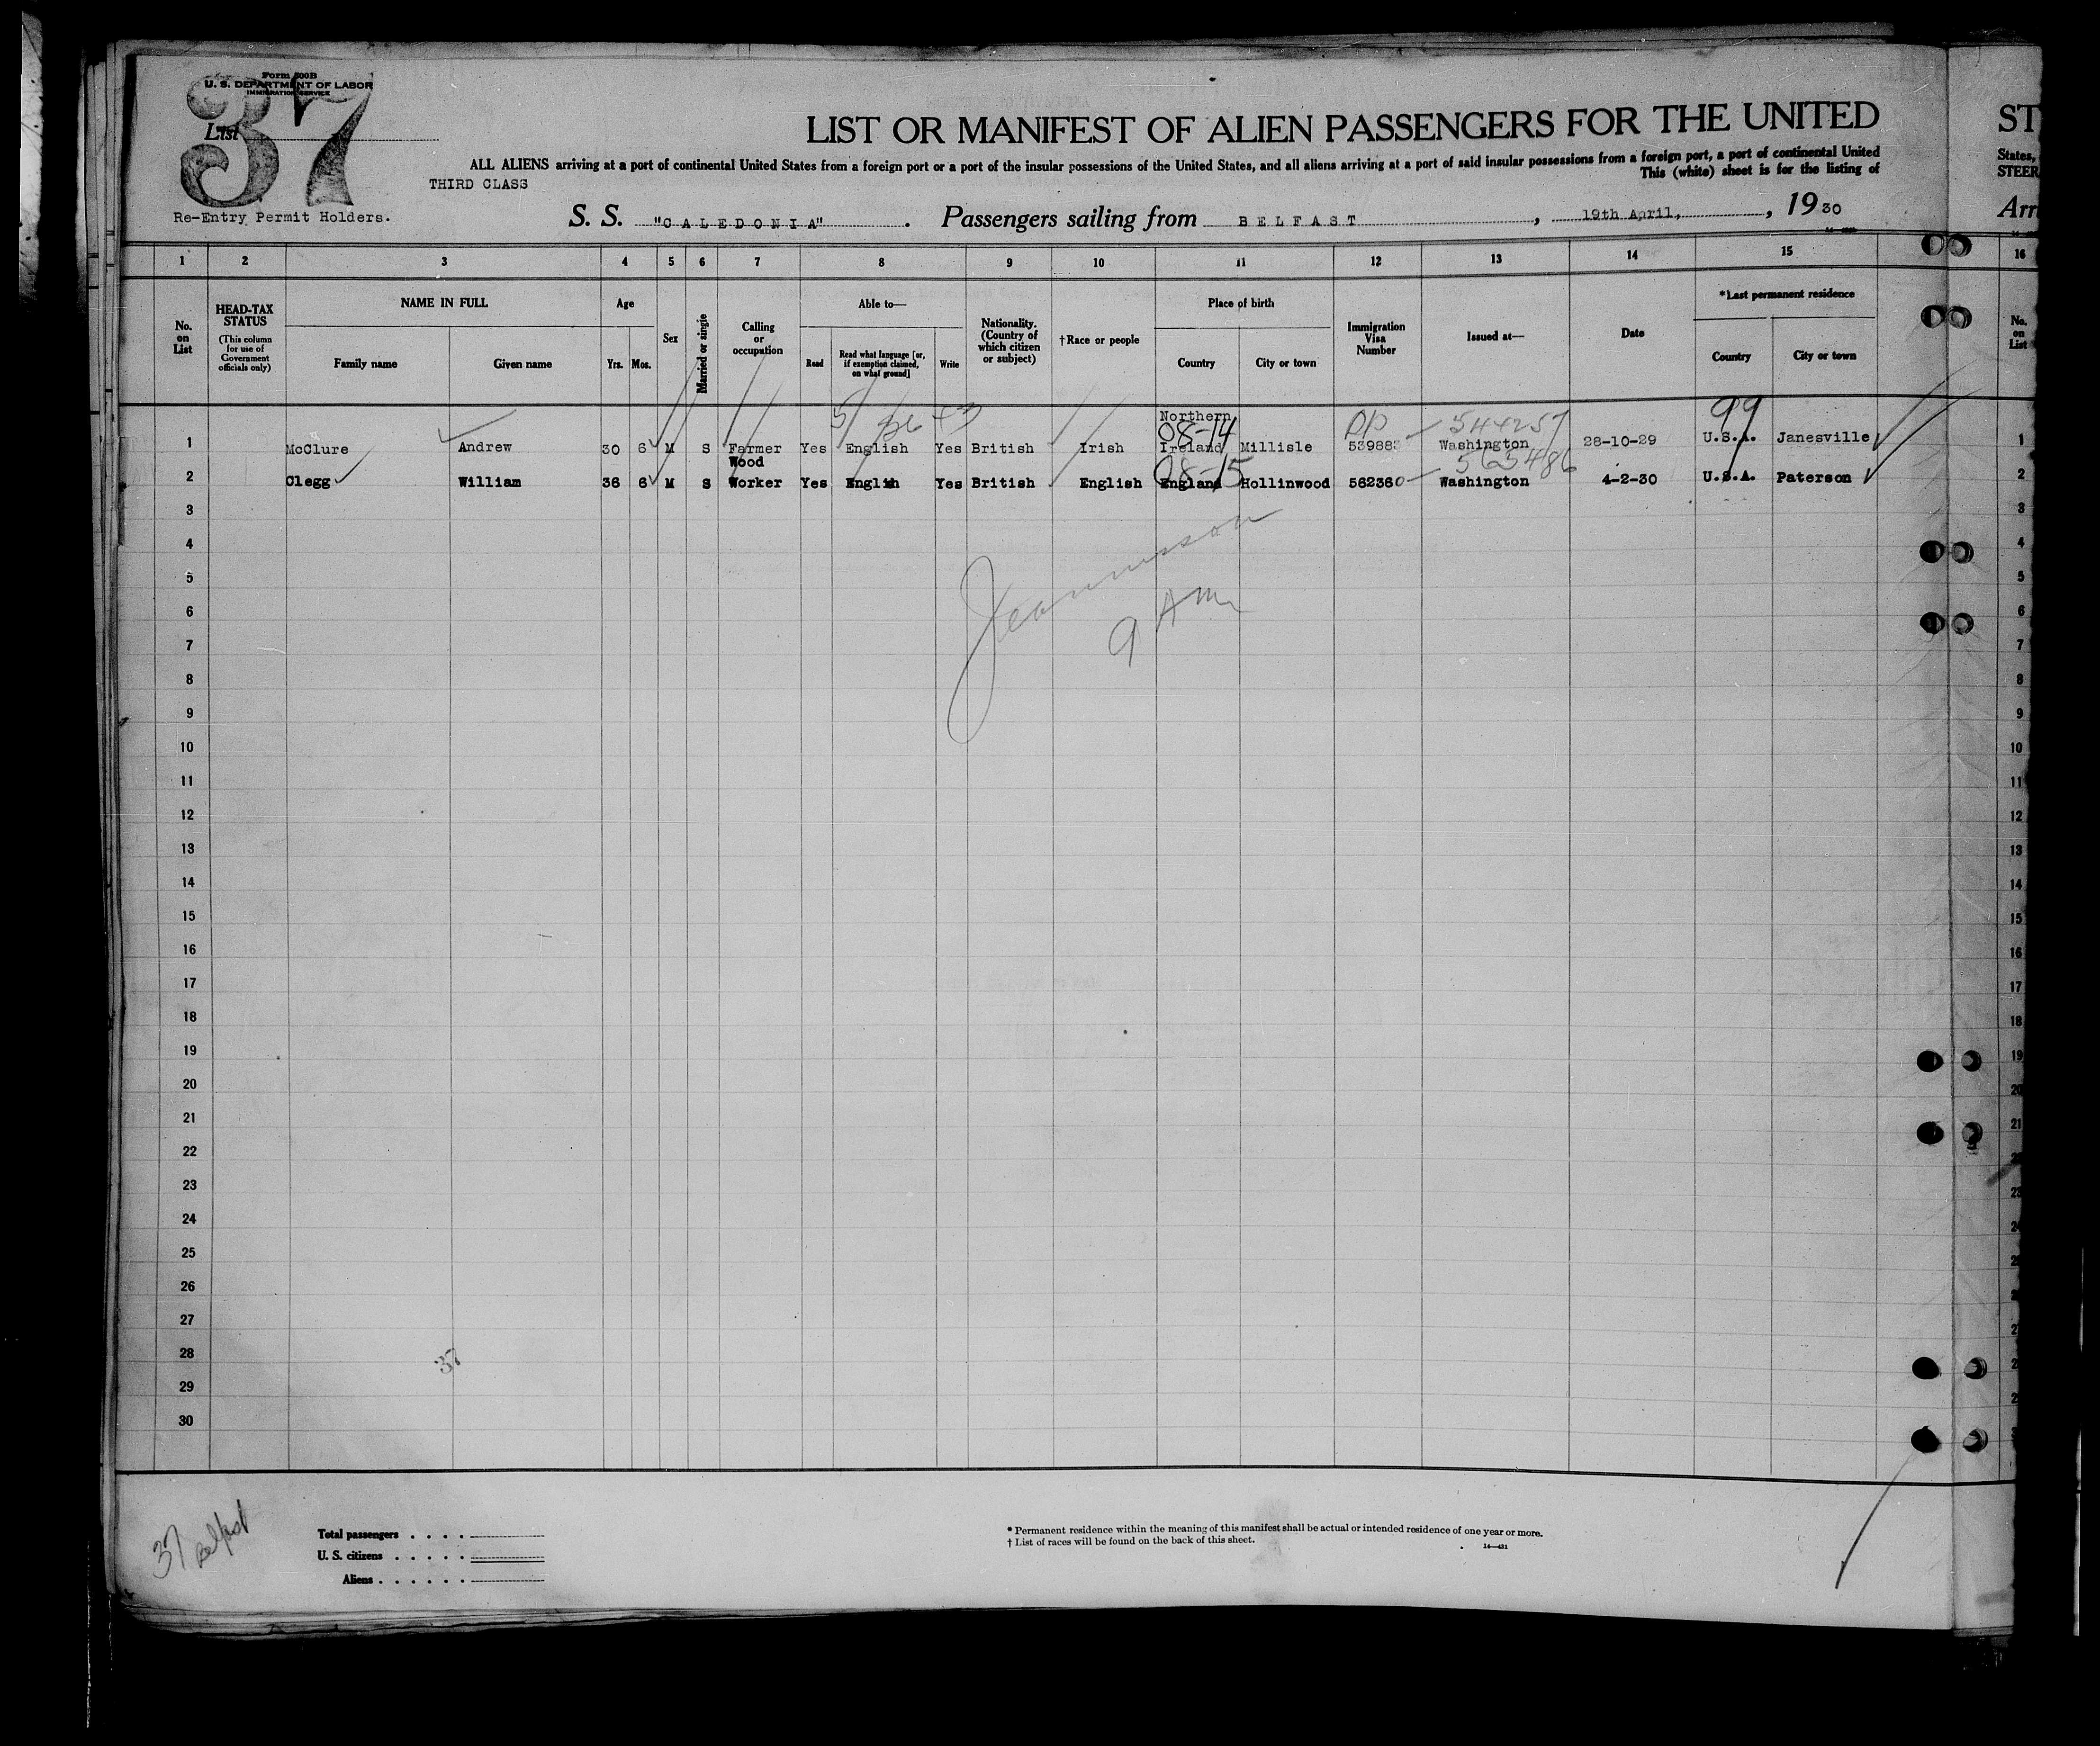 Form 500B
U. S. DEPARTMENT OF LABOR
IMMIGRATION SERVICE
37
List
LIST OR MANIFEST OF ALIEN PASSENGERS FOR THE UNITED
ST
ALL ALIENS arriving at a port of continental United States from a foreign port or a port of the insular possessions of the United States, and all aliens arriving at a port of said insular possessions from a foreign port, a port of continental United
States,
THIRD CLASS
This (white) sheet is for the listing of
STEER
Re-Entry Permit Holders.
S. S. "CALEDONIA". Passengers sailing from BELFAST, 19th April, , 1930
Arr
1 2 3 4 5 6 7 8 9 10 11 12 13 14 15 16
No. on List
HEAD-TAX STATUS
(This column for use of Government officials only)
NAME IN FULL
Family name Given name
Age
Yrs. Mos.
Sex
Married or single
Calling or occupation
Able to—
Read
Read what language [or, if exemption claimed, on what ground]
Write
Nationality. (Country of which citizen or subject)
†Race or people
Place of birth
Country City or town
Immigration Visa Number
Issued at—
Date
*Last permanent residence
Country City or town
No. on List
08-14 PP 544257 99
1 McClure Andrew 30 6 M S Farmer Yes English Yes British Irish Northern Ireland Millisle 53988 Washington 28-10-29 U.S.A. Janesville 1
08-15 565486
2 Clegg William 36 6 M S Wood Worker Yes Englih Yes British English England Hollinwood 562360 Washington 4-2-30 U.S.A. Paterson 2
3 3
4 4
5 5
6 6
9 Am
7 7
8 8
9 9
10 10
11 11
12 12
13 13
14 14
15 15
16 16
17 17
18 18
19 19
20 20
21 21
22
23
24
25
26
27
28
37
29
30
37 Belfast
Total passengers . . . .
U. S. citizens . . . . .
Aliens . . . . . .
* Permanent residence within the meaning of this manifest shall be actual or intended residence of one year or more.
† List of races will be found on the back of this sheet.
14—431